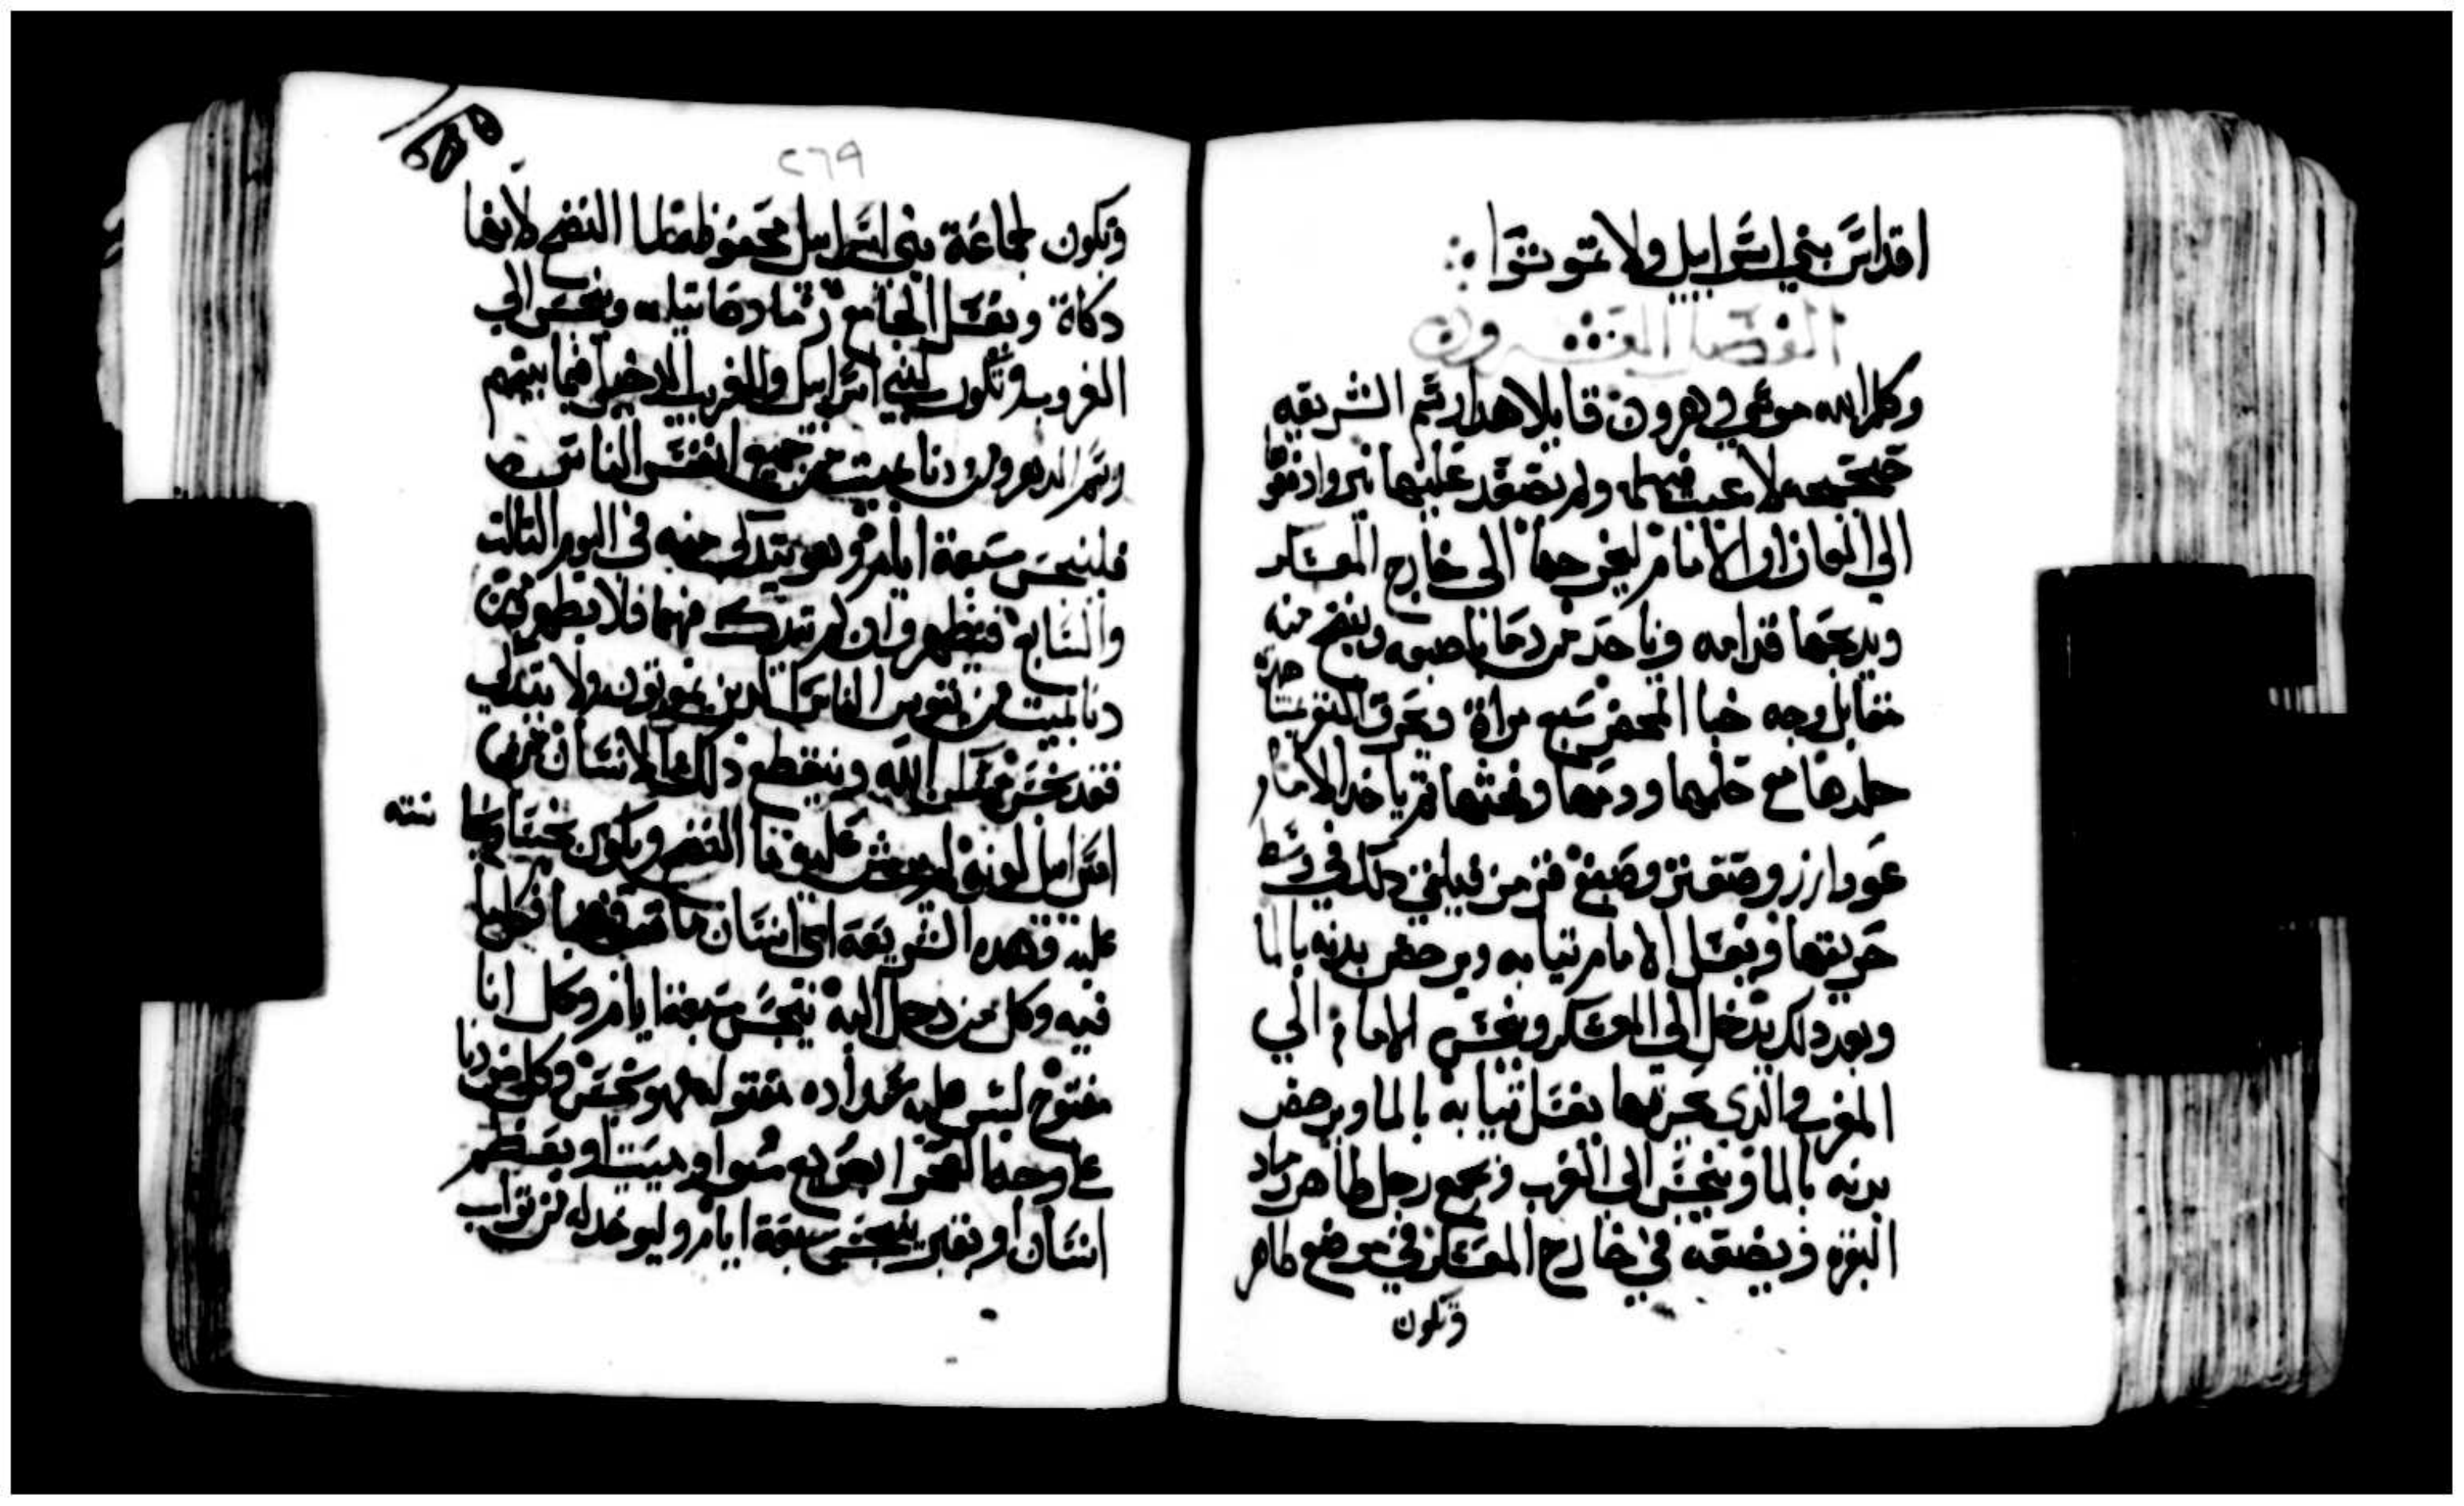 اقداس بني اسراييل ولا تموتوا
الفصل العشرون
وكلم الله موسي وهرون قايلا هدا رسم الشريعه
صحيحه لا عيب فيها ولم يصعد عليها نير وادفعوا
الي العازار الامام ليخرجها الي خارج المعسكر
ويدبحها قدامه وياخد من دمها باصبعه وينضح منه
مقابل وجه خبا المحضر سبع مراة ويحرق البقر
جلدها مع لحمها ودمها وفرثها ثم ياخد الامام
عود ارز وصعتر وصبغ قز من دلك في وسط
حريقها ويغسل الامام ثيابه ويرحض بدنه بالما
وبعد دلك يدخل الي المعسكر وينجس الامام الي
المغرب والدي يحرقها يغسل ثيابه بالما ويرحض
بدنه بالما وينجس الي المغرب ويجمع رجل طاهر رماد
البقره ويضعه في خارج المعسكر في موضع طاهر
وتكون
٢٦٩
وتكون لجماعة بني اسراييل محفوظه لما النضح لانها
دكاة ويغسل الجامع رمادها ثيابه وينجس الي
الغروب وتكون لبني اسراييل وللغريب الدخيل فيما بينهم
رسم الدهر ومن دنا بميت من جميع انفس الناس
فلينجس سبعة ايام وهو يتدكي منه في اليوم الثالث
والسابع فيطهر وان لم يتدك فيهما فلا يطهر
دنا بميت من نفوس الناس الدين يموتون ولا يتدكي
فقد نجس مسكن الله وينقطع دلك الانسان من بني
اسراييل لونه لم يرش عليه ما النضح ويكون نجسا
عليه فهده الشريعة اي انسان مات في خبا فكلما
فيه وكل من دخل اليه ينجس سبعة ايام وكل انا
مفتوح ليس عليه فهو نجس وكل من دنا
علي وجه الصحرا او ميت او بعظم
انسان او بقبر ينجس سبعة ايام وليوخد له من تراب